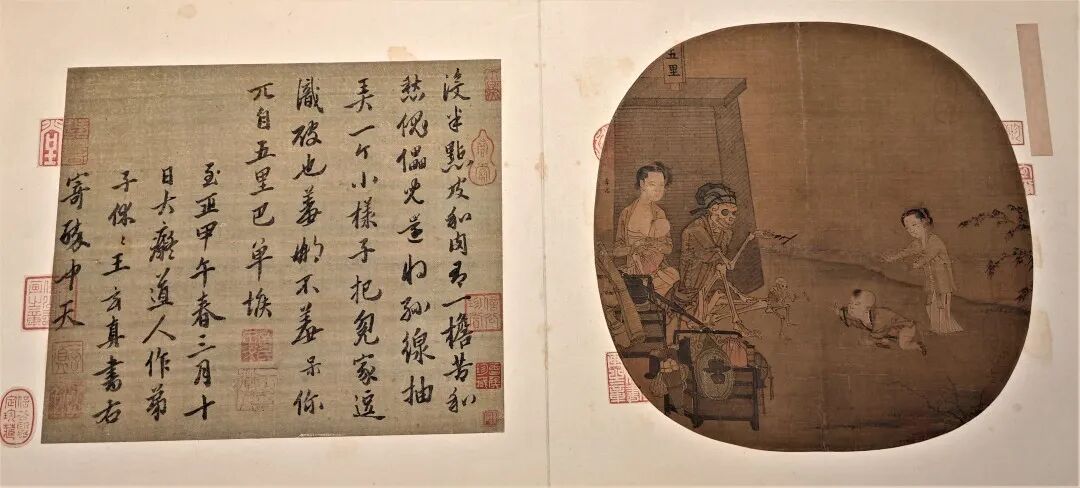 没半點皮和肉有一檐苦和
愁傀儡兒還將絲線抽
弄一个小樣子把冤家逗
識破也羞那不羞呆你
兀自五里巴單堠
至正甲午春三月十
日大癡道人作弟
子休々王玄真書右
寄醉中天
五里